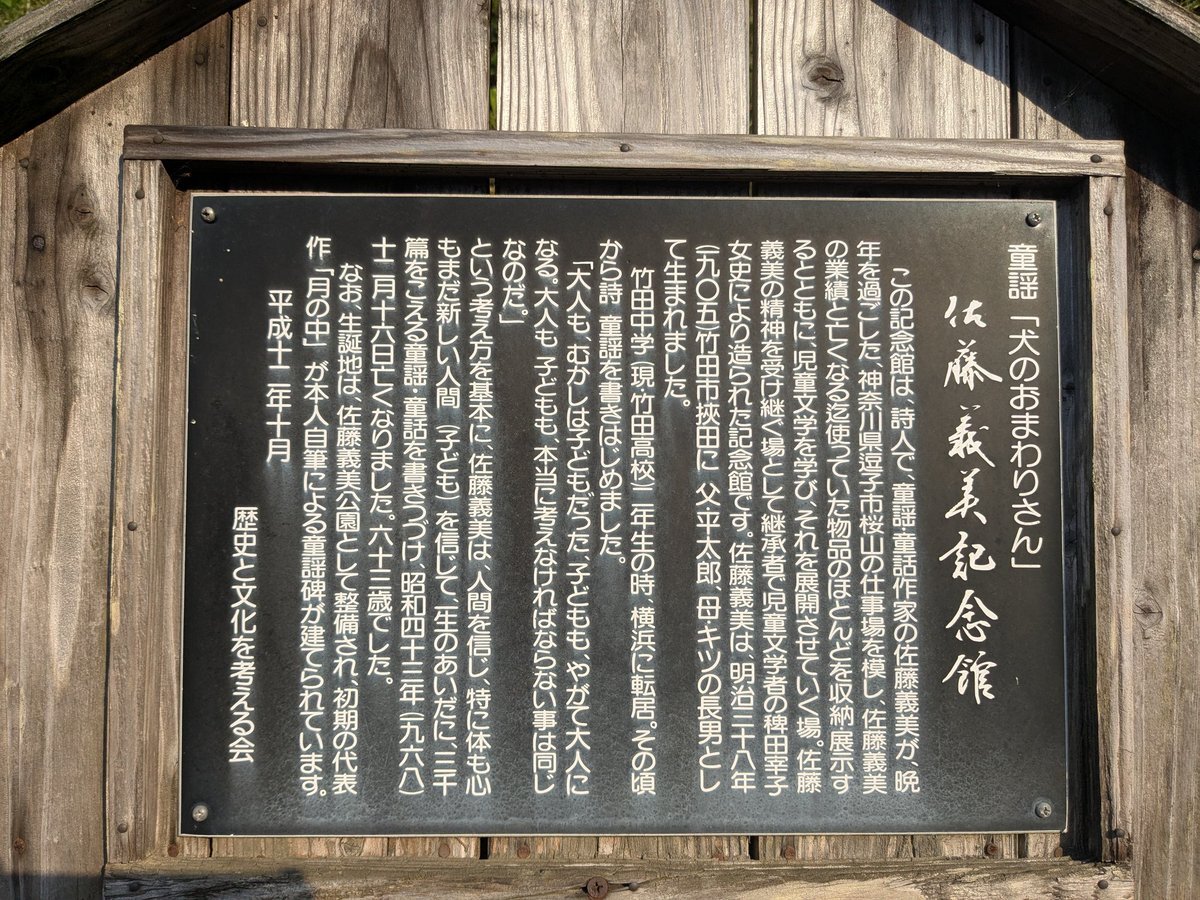 童謡「犬のおまわりさん」
佐藤義美記念館
この記念館は、詩人で、童謡・童話作家の佐藤義美が、晩
年を過ごした、神奈川県逗子市桜山の仕事場を模し、佐藤義美
の業績と亡くなる迄使っていた物品のほとんどを収納・展示す
るとともに、児童文学を学び、それを展開させていく場。佐藤
義美の精神を受け継ぐ場として継承者で児童文学者の稗田宰子
女史により造られた記念館です。佐藤義美は、明治三十八年
(一九〇五)竹田市挾田に 父・平太郎、母・キツの長男とし
て生まれました。
竹田中学(現・竹田高校)二年生の時、横浜に転居。その頃
から詩 童謡を書きはじめました。
「大人も、むかしは子どもだった、子どもも、やがて大人に
なる。大人も 子どもも、本当に考えなければならない事は同じ
なのだ。」
という考え方を基本に、佐藤義美は、人間を信じ、特に体も心
もまだ新しい人間（子ども）を信じて、一生のあいだに、三千
篇をこえる童謡・童話を書きつづけ、昭和四十三年(一九六八)
十二月十六日亡くなりました。六十三歳でした。
なお、生誕地は、佐藤義美公園として整備され、初期の代表
作「月の中」が本人自筆による童謡碑が建てられています。
平成十二年十月
歴史と文化を考える会